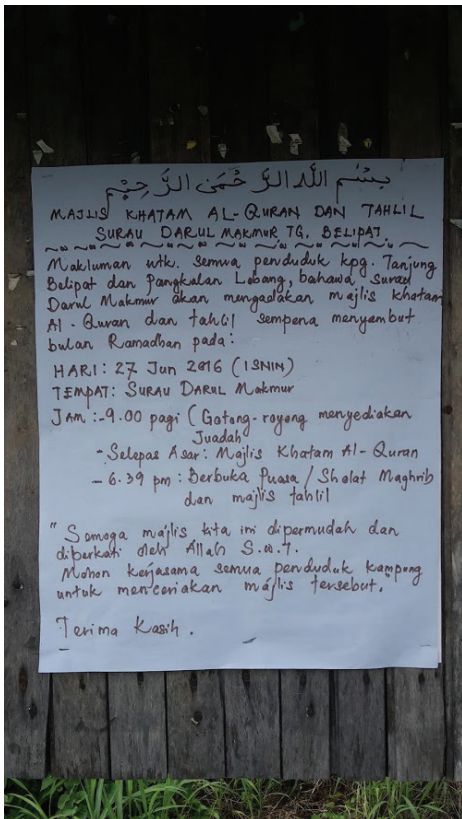 بِسْمِ اللَّهِ الرَّحْمَنِ الرَّحِيْمِ
MAJLIS KHATAM AL-QURAN DAN TAHLIL
SURAU DARUL MAKMUR TG. BELIPAT
Makluman utk. semua penduduk kpg. Tanjung
Belipat dan Pangkalan Lobang, bahawa surau
Darul Makmur akan mengadakan majlis khatam
Al-Quran dan tahlil sempena menyambut
bulan Ramadhan pada:
HARI: 27 Jun 2016 (ISNIN)
TEMPAT: SURAU DARUL Makmur
JAM :-9.00 pagi (Gotong-royong menyediakan
Juadah
- Selepas Asar: Majlis Khatam Al-Quran
- 6.39 pm : Berbuka Puasa / Sholat Maghrib
dan majlis tahlil
" Semoga majlis kita ini dipermudah dan
diberkati oleh Allah S.W.T.
Mohon kerjasama semua penduduk kampong
untuk menceriakan majlis tersebut.
Terima Kasih .